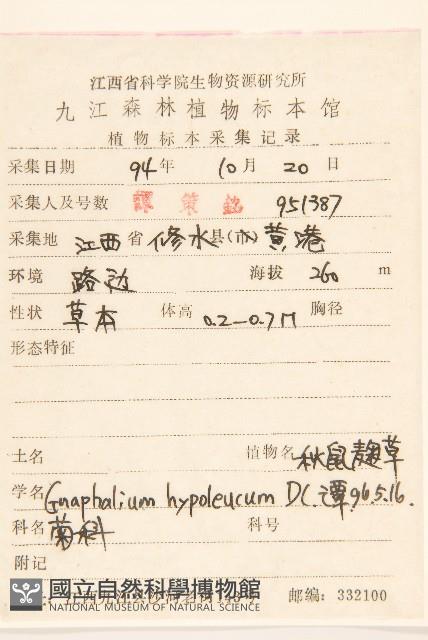 江西省科学院生物资源研究所
九江森林植物标本馆
植物标本采集记录
采集日期 94年 10月 20日
采集人及号数 譚策銘 951387
采集地 江西省 修水县(市)黄港
环境 路边 海拔 260 m
性状 草本 体高 0.2—0.7M 胸径
形态特征
土名 植物名 秋鼠麴草
学名 Gnaphalium hypoleucum DC. 譚.96.5.16.
科名 菊科 科号
附记
國立自然科學博物館
NATIONAL MUSEUM OF NATURAL SCIENCE
邮编: 332100